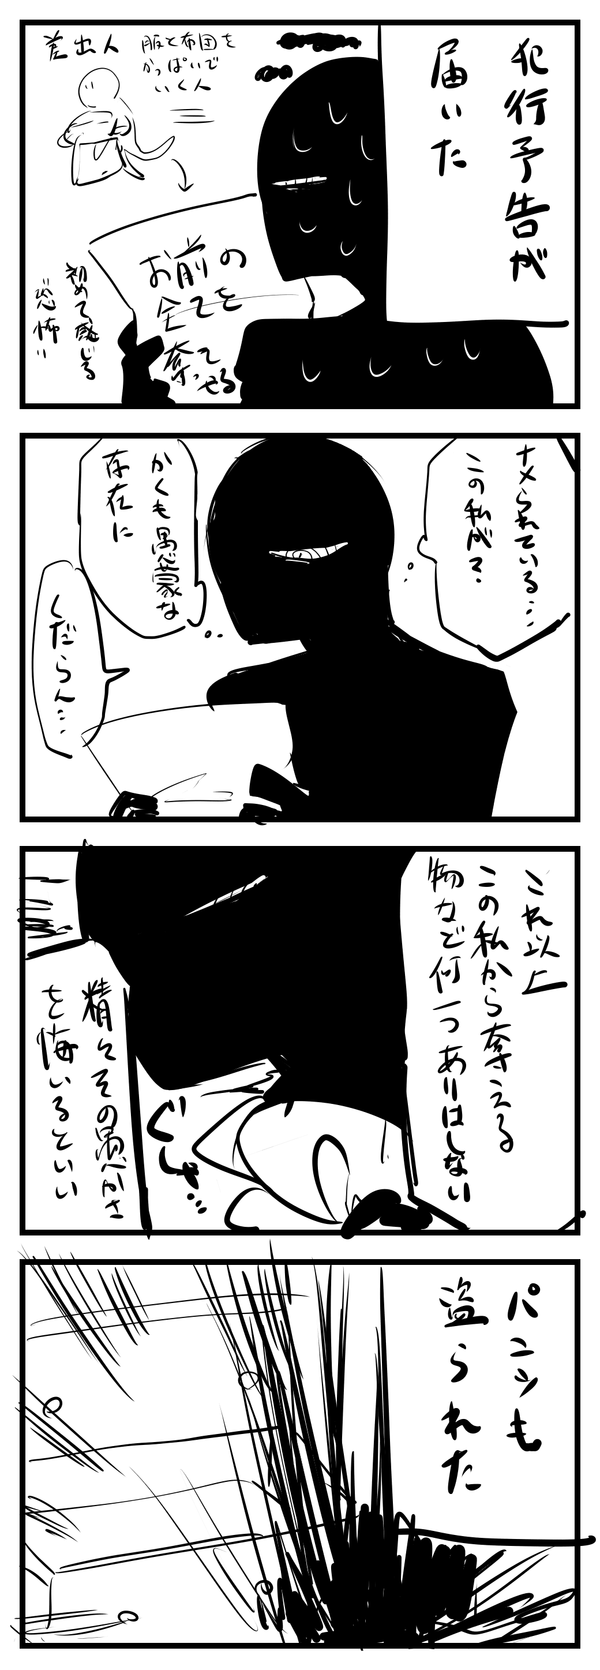 犯行予告が
届いた
服と布団を
かっぱいで
いく人
差出人
お前の
全てを
奪って
やる
初めて感じる
恐怖…
ナメられている…
この私が？
かくも愚蒙な
存在に
くだらん…
これ以上
この私から奪える
物など何一つありはしない
ぐしゃ…
精々その愚かさ
を悔いるといい
パンツも
盗られた